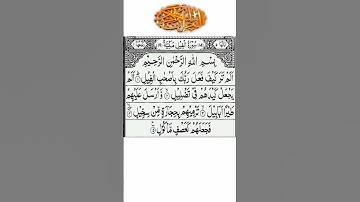 سُورَةُ الْفِيلِ مَكِّيَّةٌ
بِسْمِ اللّٰهِ الرَّحْمٰنِ الرَّحِيْمِ
اَلَمْ تَرَ كَيْفَ فَعَلَ رَبُّكَ بِاَصْحٰبِ الْفِيْلِ اَلَمْ
يَجْعَلْ كَيْدَهُمْ فِيْ تَضْلِيْلٍ وَّاَرْسَلَ عَلَيْهِمْ
طَيْرًا اَبَابِيْلَ تَرْمِيْهِمْ بِحِجَارَةٍ مِّنْ سِجِّيْلٍ
فَجَعَلَهُمْ كَعَصْفٍ مَّاْكُوْلٍ